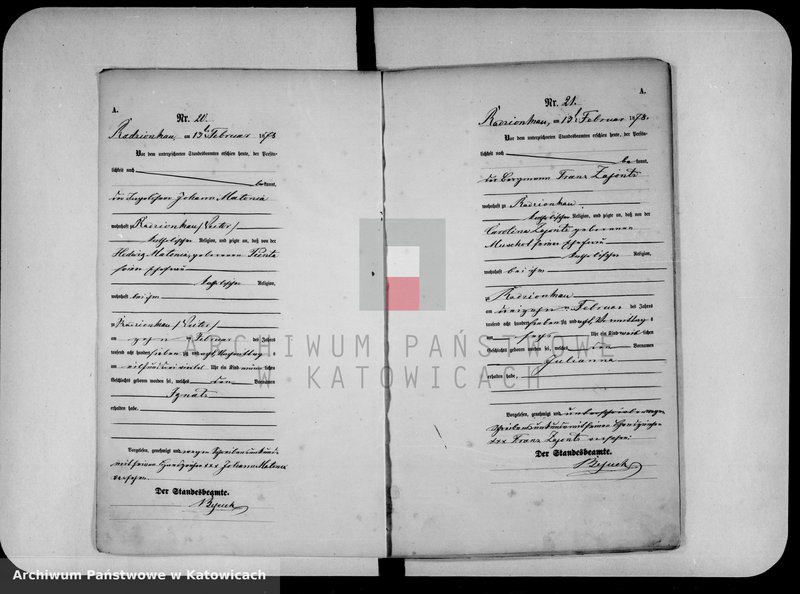 A.
Nr. 20.
Radzionkau, am 13t Februar 1878
Vor dem unterzeichneten Standesbeamten erschien heute, der Persön-
lichkeit nach
bekannt,
der Johann Matonia
wohnhaft zu Radzionkau
katholischer Religion, und zeigte an, daß von der
Hedwig Matonia, geborenen
seiner Ehefrau
katholischer Religion,
wohnhaft bei ihm
zu Radzionkau
am zehn Februar des Jahres
tausend acht hundert sieben zig und acht Vormittag
um Uhr ein Kind männlichen
Geschlecht geboren worden sei, welches den Vornamen
Ignatz
erhalten habe.
Vorgelesen, genehmigt und wegen Schreibensunkunde
mit seinem Handzeichen xxx Johann Matonia
versehen.
Der Standesbeamte.
A.
Nr. 21.
Radzionkau, am 13t Februar 1878.
Vor dem unterzeichneten Standesbeamten erschien heute, der Persön-
lichkeit nach
bekannt,
der Bergmann Franz Zajontz
wohnhaft zu Radzionkau
katholischer Religion, und zeigte an, daß von der
Carolina Zajontz geborenen
seiner Ehefrau
katholischer Religion,
wohnhaft bei ihm
zu Radzionkau
am dreizehn Februar des Jahres
tausend acht hundert sieben zig und acht Vormittag
um Uhr ein Kind weiblichen
Geschlechts geboren worden sei, welches den Vornamen
Julianna
erhalten habe.
Vorgelesen, genehmigt und
mit seinem Handzeichen
xxx Franz Zajontz versehen.
Der Standesbeamte.
ARCHIWUM PAŃSTWOWE
W KATOWICACH
Archiwum Państwowe w Katowicach